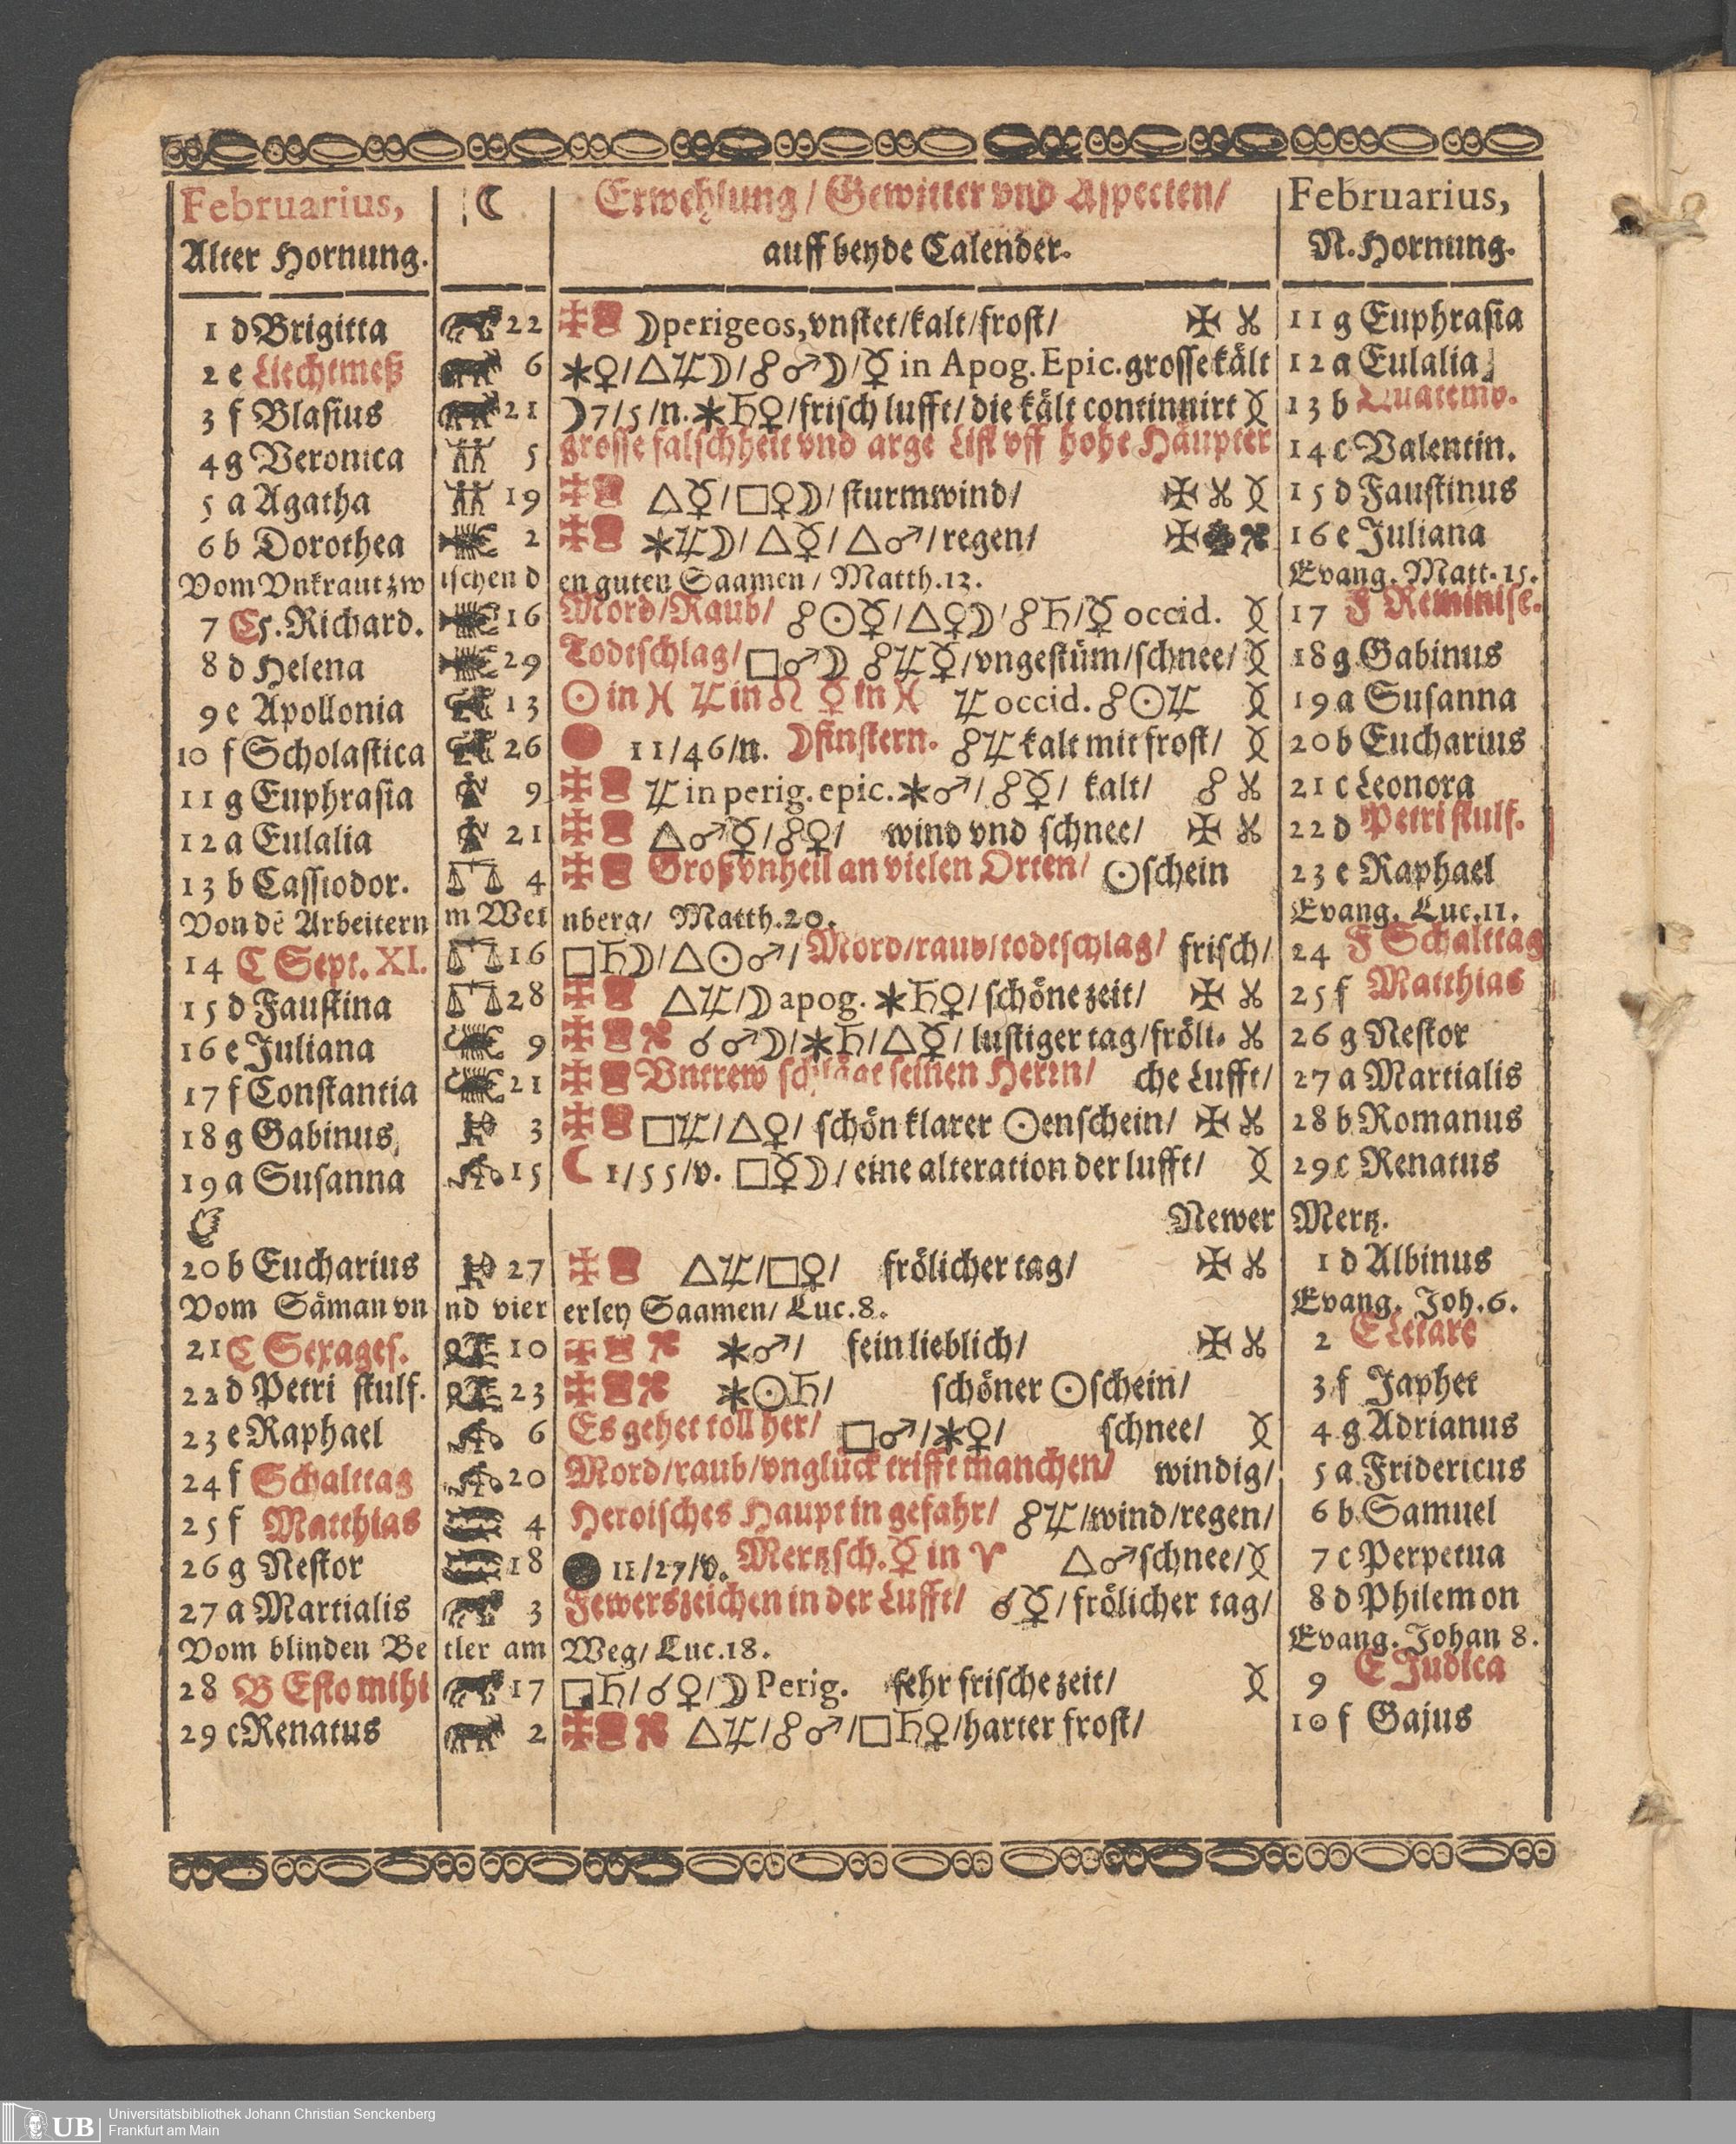 Februarius, ☾ Erwehlung / Gewitter vnd Aspecten / Februarius,
Alter Hornung. auff beyde Calender. N. Hornung.
1 d Brigitta 22 ☽ perigeos, vnstet / kalt / frost / ✠ 11 g Euphrasia
2 e Liechtmeß 6 ✶♀ / △♃☽ / ☍♂☽ / ☿ in Apog. Epic. grosse kält 12 a Eulalia
3 f Blasius 21 ☽ 7 / 5 / n. ✶♄♀ / frisch lufft / die kält continuirt 13 b Quatemb.
4 g Veronica 5 grosse falschheit vnd arge List vff hohe Häupter 14 c Valentin.
5 a Agatha 19 △☿ / □♀☽ / sturmwind / ✠ 15 d Faustinus
6 b Dorothea 2 ✶♃☽ / △☿ / △♂ / regen / ✠ 16 e Juliana
Vom Vnkraut zwischen den guten Saamen / Matth. 13. Evang. Matt. 15.
7 C 5. Richard. 16 Mord / Raub / ☍☉☿ / △♀☽ / ☍♄ / ☿ occid. 17 F Reminisc.
8 d Helena 29 Todtschlag / □♂☽ ☍♃☿ / vngestüm / schnee / 18 g Gabinus
9 e Apollonia 13 ☉ in ♓ ♃ in ♌ ☿ in ♓ ♃ occid. ☍☉♃ 19 a Susanna
10 f Scholastica 26 11 / 46 / n. ☽finstern. ☍♃ kalt mit frost / 20 b Eucharius
11 g Euphrasia 9 ♃ in perig. epic. ✶♂ / ☍☿ / kalt / ☍ 21 c Leonora
12 a Eulalia 21 △♂☿ / ☍♀ / wind vnd schnee / ✠ 22 d Petri stulf.
13 b Cassiodor. 4 Groß vnheil an vielen Orten / ☉schein 23 e Raphael
Von dē Arbeitern m Weinberg / Matth. 20. Evang. Luc. 11.
14 C Sept. XI. 16 □♄☽ / △☉♂ / Mord / raub / todtschlag / frisch / 24 F Schalttag
15 d Faustina 28 △♃ / ☽ apog. ✶♄♀ / schöne zeit / ✠ 25 f Matthias
16 e Juliana 9 ☌♂☽ / ✶♄ / △☿ / lustiger tag / fröli- 26 g Nestor
17 f Constantia 21 Vntrew schlägt seinen Herrn / che Lufft / 27 a Martialis
18 g Gabinus, 3 □♃ / △♀ / schön klarer ☉enschein / ✠ 28 b Romanus
19 a Susanna 15 ☾ 1 / 55 / v. □☿☽ / eine alteration der lufft / 29 c Renatus
Newer Mertz.
20 b Eucharius 27 △♃ / □♀ / frölicher tag / ✠ 1 d Albinus
Vom Säman vnnd viererley Saamen / Luc. 8. Evang. Joh. 6.
21 C Sexages. 10 ✶♂ / fein lieblich / ✠ 2 E Letare
22 d Petri stulf. 23 ✶☉♄ / schöner ☉schein / 3 f Japhet
23 e Raphael 6 Es gehet toll her / □♂ / ✶♀ / schnee / 4 g Adrianus
24 f Schalttag 20 Mord / raub / vnglück trifft manchen / windig / 5 a Fridericus
25 f Matthias 4 Heroisches Haupt in gefahr / ☍♃ / wind / regen / 6 b Samuel
26 g Nestor 18 11 / 27 / v. Mertzsch. ☿ in ♈ △♂ schnee / 7 c Perpetua
27 a Martialis 3 Fewerszeichen in der Lufft / ☌☿ / frölicher tag / 8 d Philemon
Vom blinden Betler am Weg / Luc. 18. Evang. Johan 8.
28 B Esto mihi 17 □♄ / ☌♀ / ☽ Perig. sehr frische zeit / 9 E Judica
29 c Renatus 2 △♃ / ☍♂ / □♄♀ / harter frost / 10 f Gajus
UB Universitätsbibliothek Johann Christian Senckenberg
Frankfurt am Main